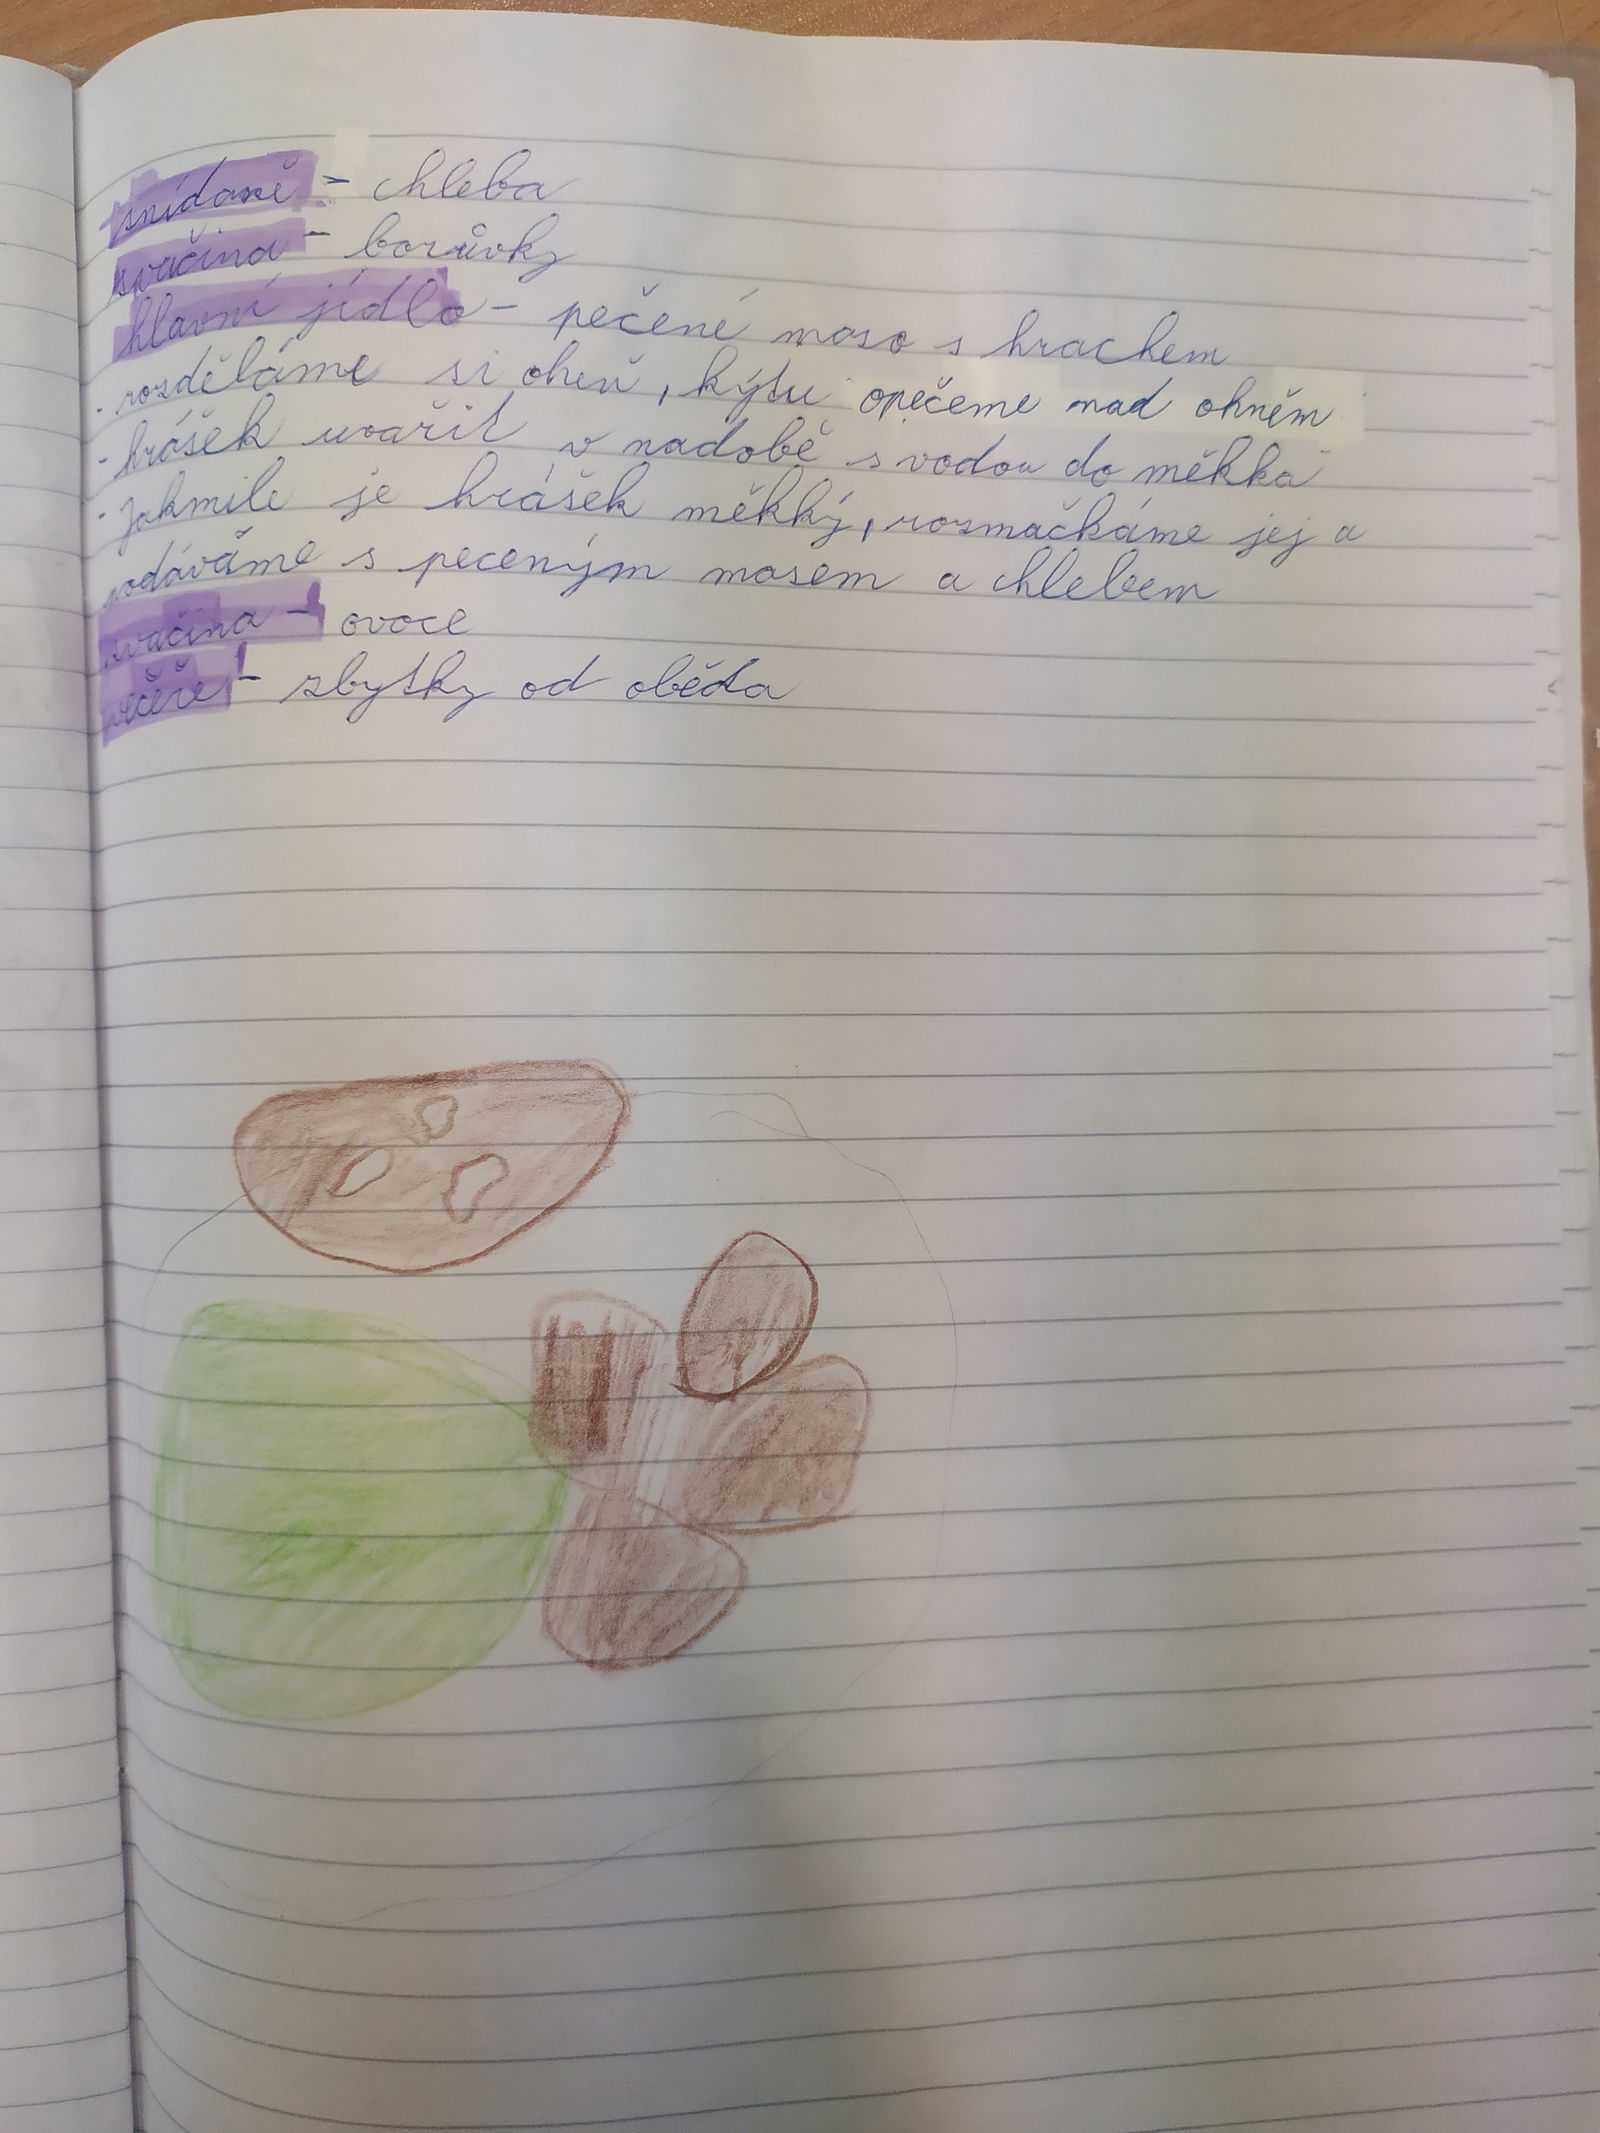 snídaně - chleba
svačina - borůvky
hlavní jídlo - pečené maso s hrachem
· rozděláme si oheň, kýtu opečeme nad ohněm
· hrášek uvařit v nadobě s vodou do měkka
· Jakmile je hrášek měkký, rozmačkáme jej a
podáváme s peceným masem a chlebem
svačina - ovoce
večeře - zbytky od oběda